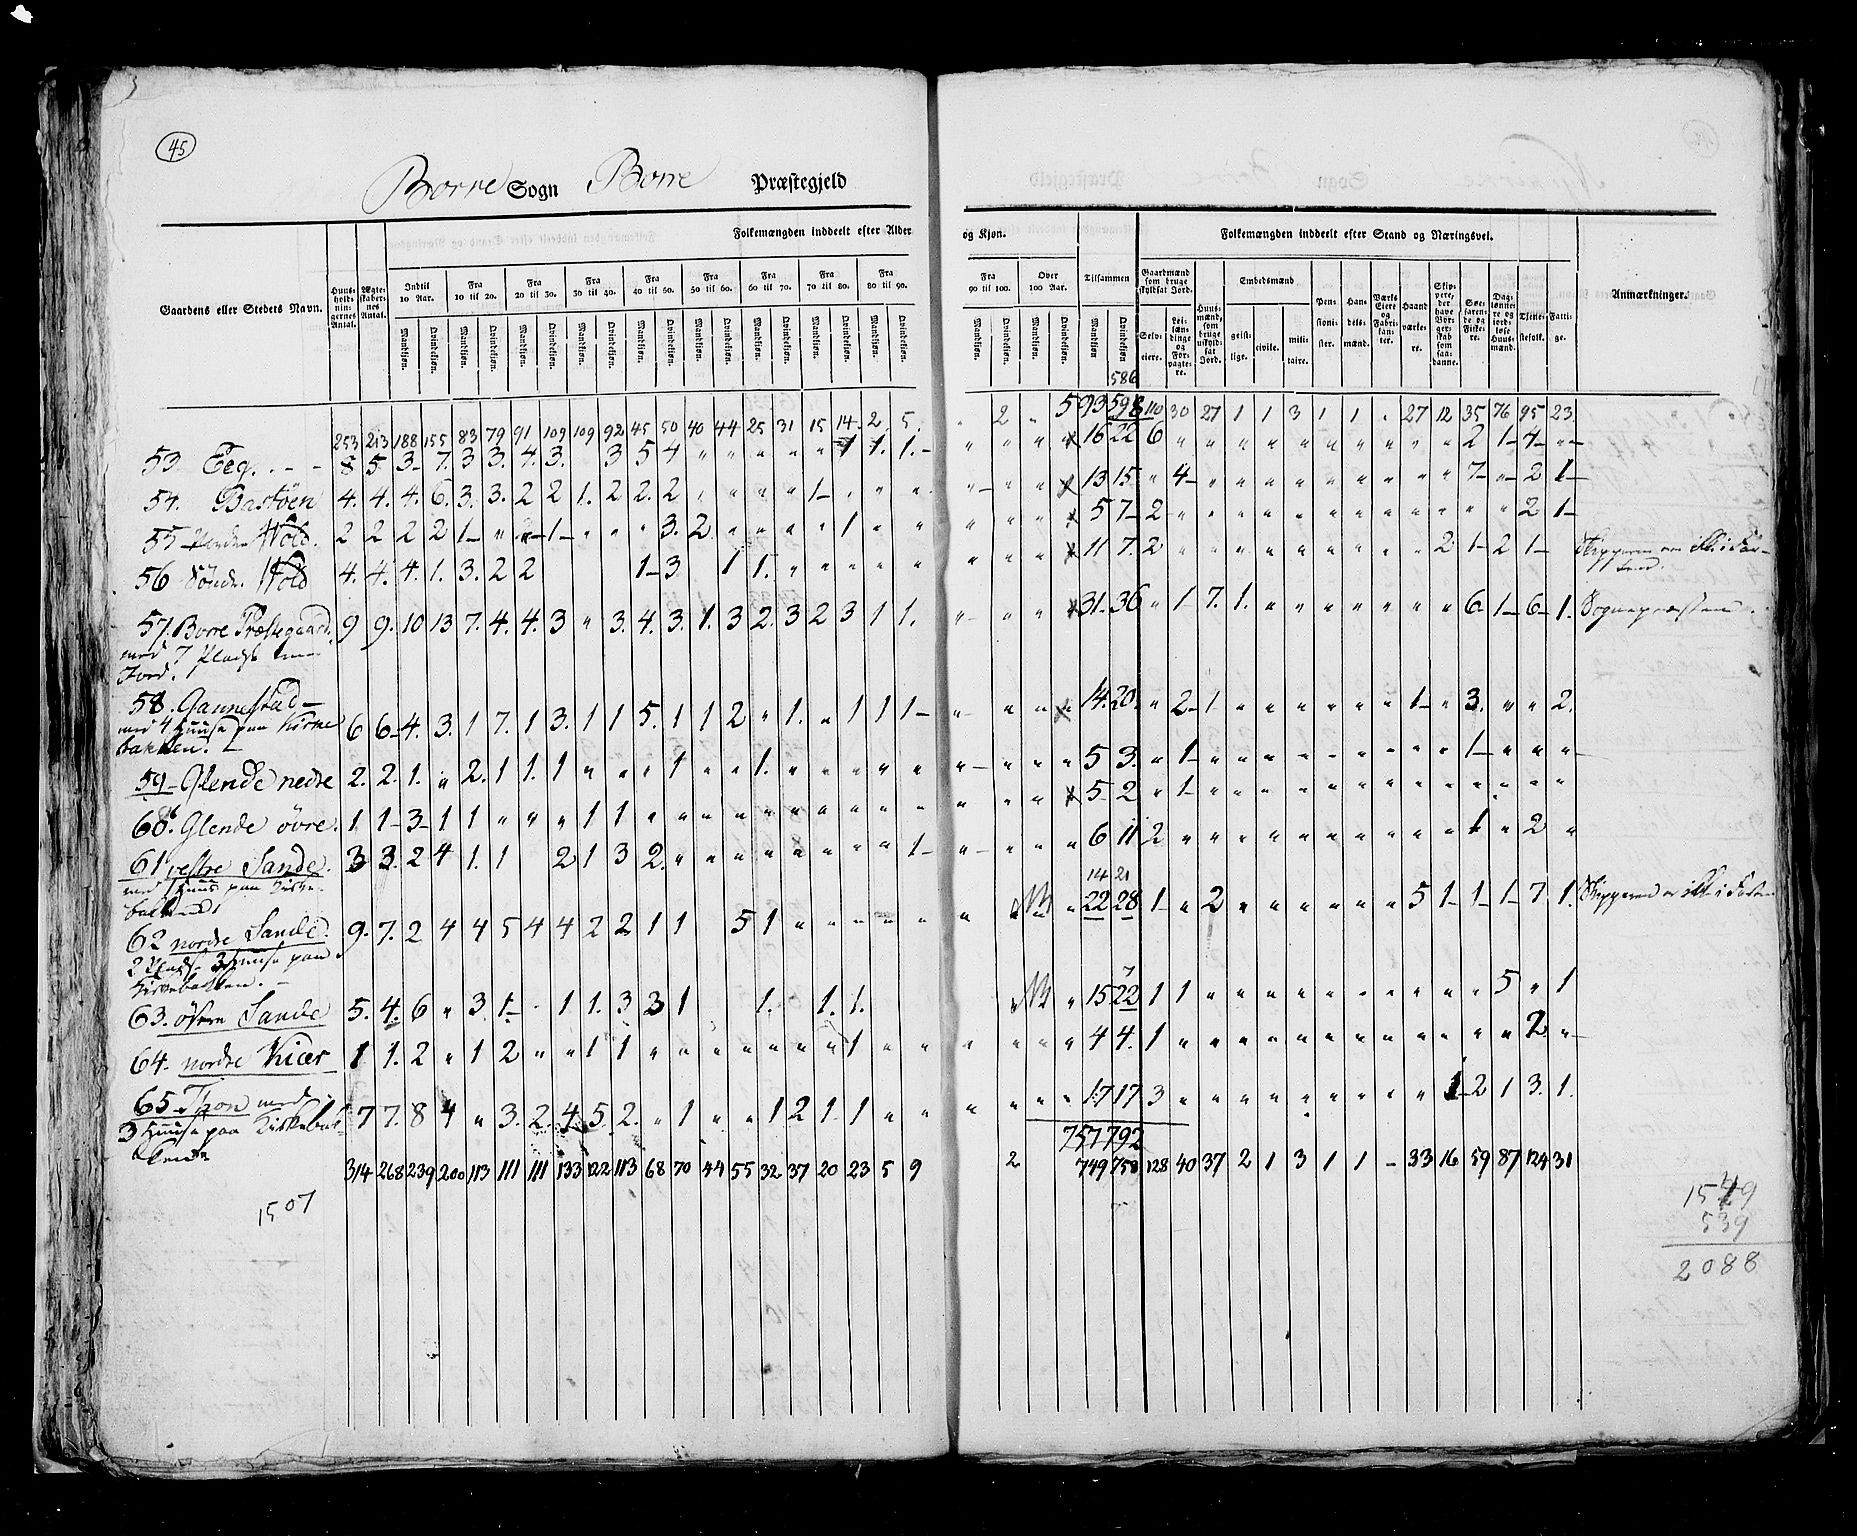 45
Borre Sogn Borre Præstegjeld
Gaardens eller Stedets Navn.
Huusholdningernes Antal.
Ægteskabernes Antal.
Folkemængden inddeelt efter Alder og Kjøn.
Indtil 10 Aar. Fra 10 til 20. Fra 20 til 30. Fra 30 til 40. Fra 40 til 50. Fra 50 til 60. Fra 60 til 70. Fra 70 til 80. Fra 80 til 90. Fra 90 til 100. Over 100 Aar. Tilsammen
Mandkjøn. Qvindekjøn.
Folkemængden inddeelt efter Stand og Næringsvei.
Gaardmænd som bruge skyldsat Jord.
Selveiere.
Leilændinge og Forpagtere.
Huusmænd, som bruge uskyldsat Jord.
Embedsmænd
geistlige. civile. militaire.
Pensionister.
Handelsmænd.
Værks Eiere og Fabrikanter.
Haandværkere.
Skippere, der have Borgerskab som saadanne.
Søefarende og Fiskere.
Daglønnere og jordløse Huusmænd.
Tjenestefolk.
Fattige.
Anmærkninger.
586
253 213 188 155 83 79 91 109 109 92 45 50 40 44 25 31 15 14 2 5 " 2 " 593 598 110 30 27 1 1 3 1 1 " 27 12 35 76 95 23
53 Eeg. 8 5 3 7 3 3 4 3 3 5 4 " " " " " 1 1 1 16 22 6 2 1 4
54. Bastöen 4 4 4 6 3 3 2 2 1 2 2 2 " " " " 1 13 15 " 4 7 " 2 1
55 Nordre Wold. 2 2 2 2 1 " " 1 " " " 3 2 " " " " 1 5 7 2 2 1
56 Söndr. Wold 4 4 4 1 3 2 2 1 3 1 1 11 7 2 2 1 2 1
57. Borre Præstegaard 9 9 10 13 7 4 4 3 " 3 4 3 1 3 2 3 2 3 1 1 31 36 " 1 7 1 6 1 6 1 Sognepræsten
med 7 Pladse
Jord.
58. Gannestad
med 4 Huuse paa Kirke 6 6 4 3 1 7 1 3 1 1 5 1 1 2 " 1 " 1 1 1 14 20 " 2 1 1 " 3 " " 2
bakken.
59 Glende nedre 2 2 1 " 2 1 1 1 " " " 1 " " 1 5 3 " 1 1
60. Glende övre. 1 1 3 1 1 " " " 1 1 5 2 " 1
61 vestre Sande. 3 3 2 4 1 1 2 1 3 2 1 6 11 2 1 " 2
med 1 Huus paa Kirke-
14 21
62 nordre Sande. 9 7 2 4 4 5 4 4 2 2 1 1 5 1 NB 22 28 1 " 2 5 1 1 1 7 1
2 Plads. 3 Huuse paa
Kirkebakken.
7
63. östre Sande 5 4 6 " 3 1 1 1 3 3 1 1 1 1 NB 15 22 1 1 5 " 1
64. nordre Kiær 1 1 2 " 1 2 " " 1 1 1 4 4 1 2
65. Thon med
3 Huuse paa Kirkebak- 7 7 8 4 " 3 2 4 5 2 " 1 " " 1 2 1 1 17 17 3 1 2 1 3 1
757 792
314 268 239 200 113 111 111 133 122 113 68 70 44 55 32 37 20 23 5 9 2 749 758 128 40 37 2 1 3 1 1 - 33 16 59 87 124 31
1507
1549
539
2088